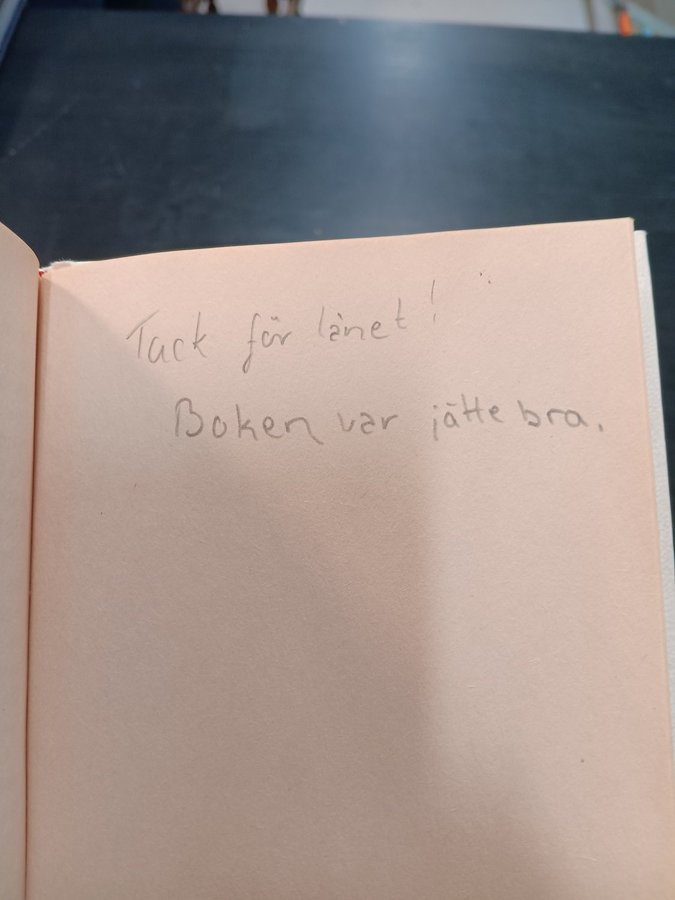 Tack för lånet!
Boken var jätte bra.